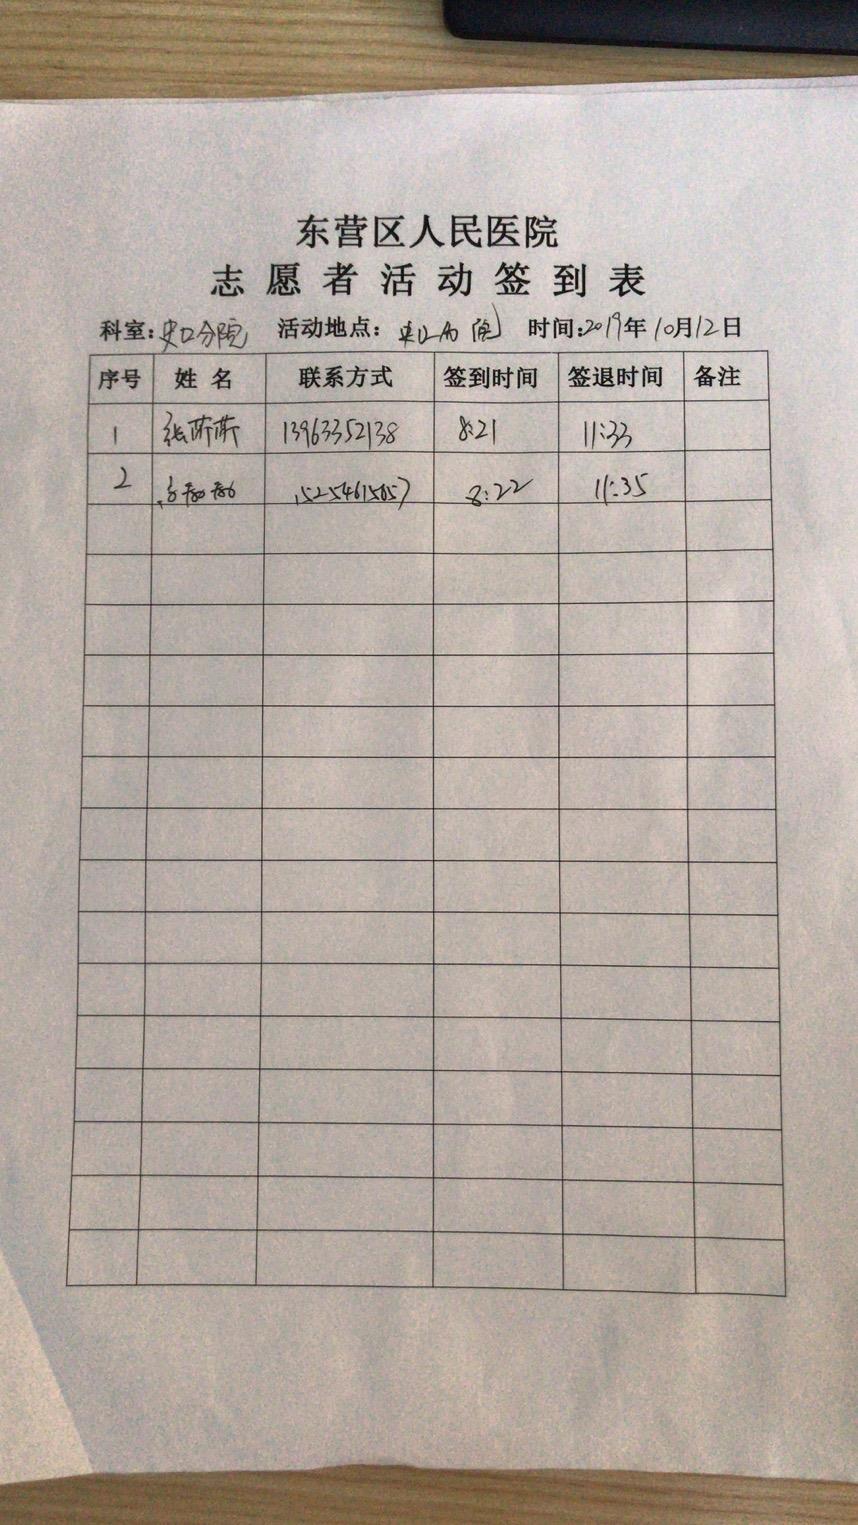 东营区人民医院
志愿者活动签到表
科室:史口分院 活动地点:史口分院 时间:2019年10月12日
序号 姓名 联系方式 签到时间 签退时间 备注
1 张莎莎 13963352138 8:21 11:33
2 8:22 11:35